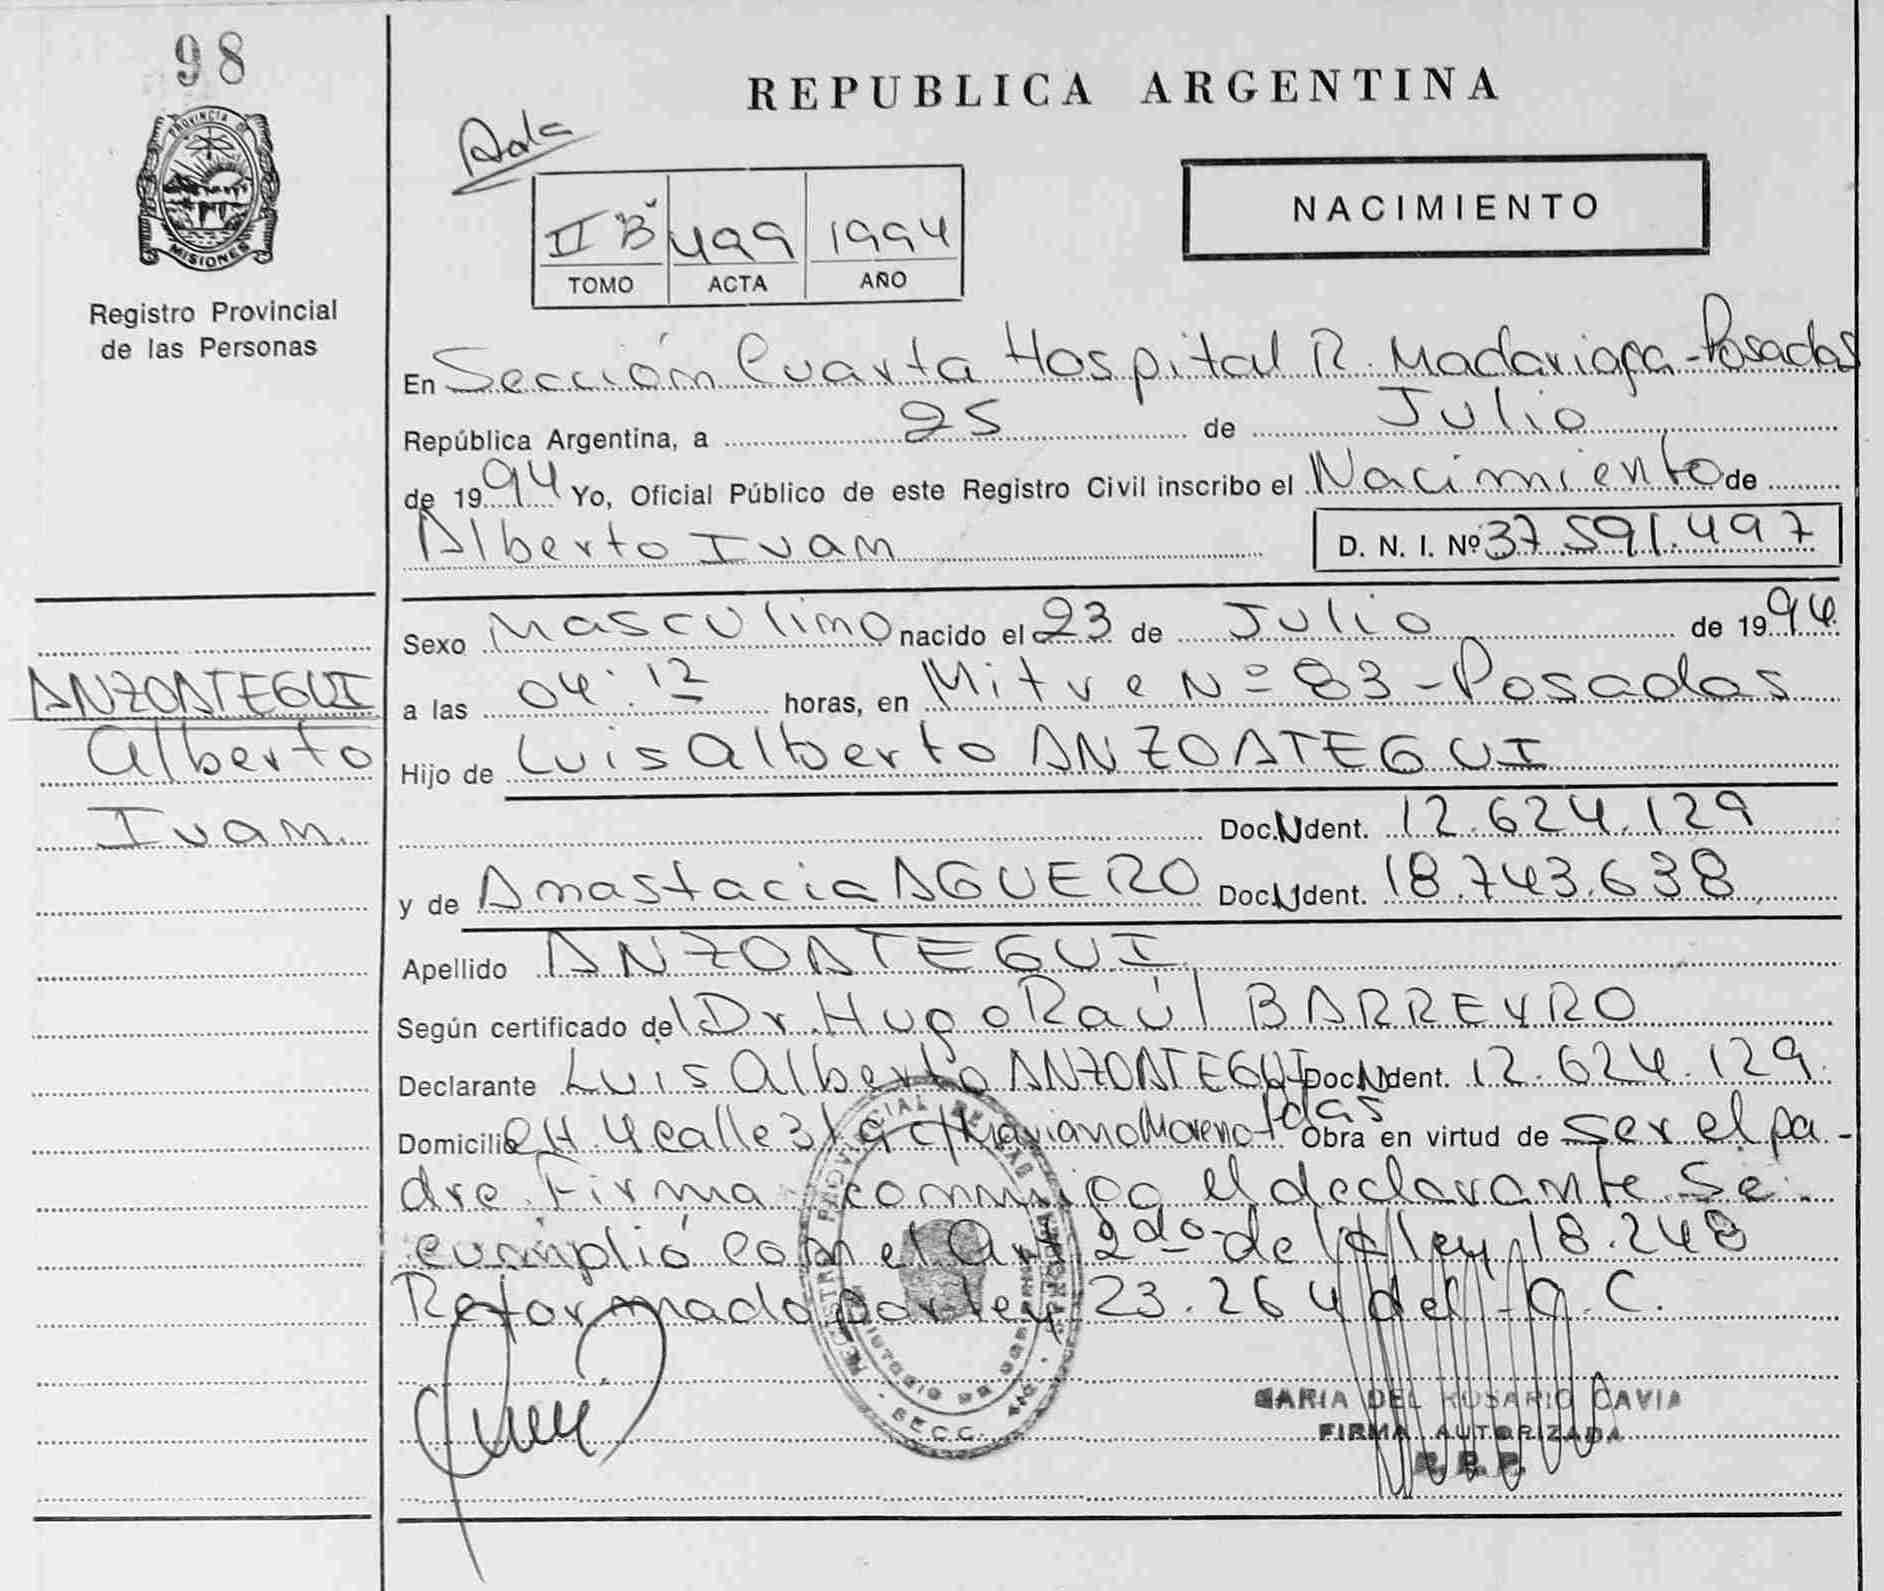 98
PROVINCIA DE
MISIONES
Registro Provincial
de las Personas
ANZOATEGUI
Alberto
Ivan.
REPUBLICA ARGENTINA
NACIMIENTO
II "B" 499 1994
TOMO ACTA AÑO
En Sección Cuarta Hospital R. Madariaga - Posadas
República Argentina, a 25 de Julio
de 1994 Yo, Oficial Público de este Registro Civil inscribo el Nacimiento de
Alberto Ivan D. N. I. Nº 37.591.497
Sexo Masculino nacido el 23 de Julio de 1994
a las 04:12 horas, en Mitre Nº 83 - Posadas
Hijo de Luis Alberto ANZOATEGUI
Doc. N dent. 12.624.129
y de Anastacia AGUERO Doc. N dent. 18.743.638
Apellido ANZOATEGUI
Según certificado del Dr. Hugo Raúl BARREYRO
Declarante Luis Alberto ANZOATEGUI Doc. N dent. 12.624.129
Domicilio CH. 4 calle 31 Mariano Moreno Pdas Obra en virtud de ser el pa-
dre. Firma conmigo el declarante Se
cumplió con el Art 2do de la ley 18.248
Reformado por ley 23.264 del C.
REGISTRO PROVINCIAL DE LAS PERSONAS
MARIA DEL ROSARIO CAVIA
FIRMA AUTORIZADA
R. P. P.